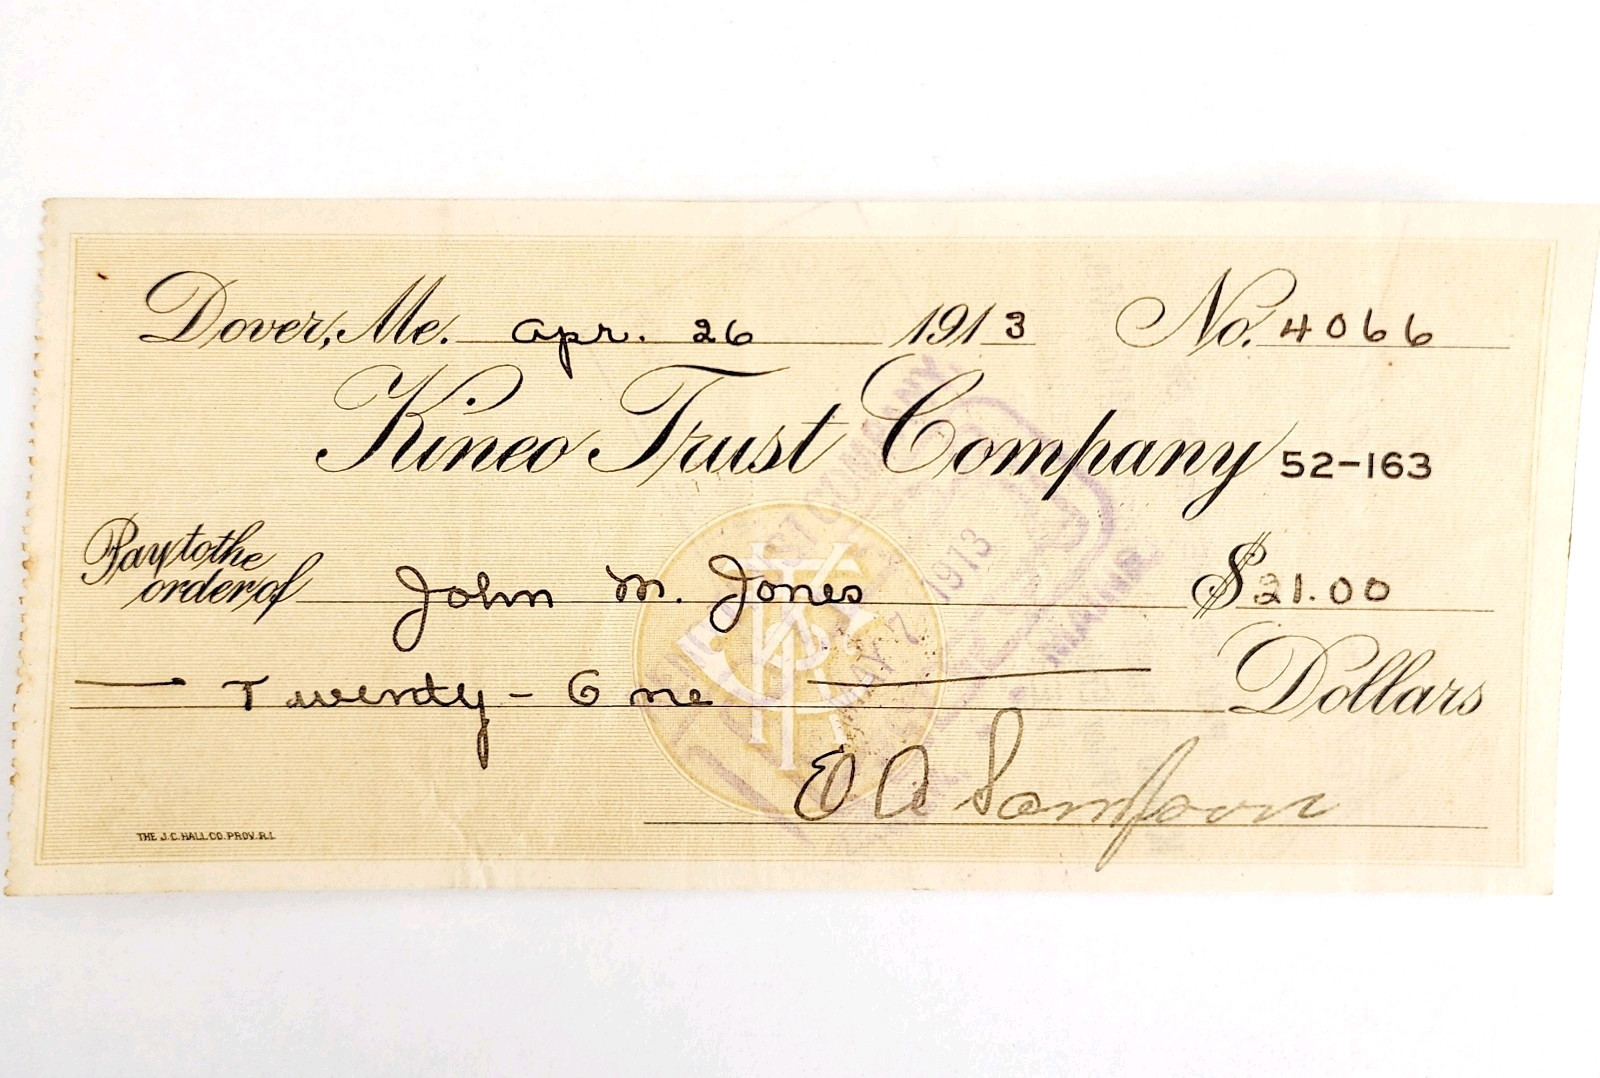 Dover, Me. apr. 26 1913 No. 4066
Kineo Trust Company 52-163
Pay to the order of John M. Jones $21.00
Twenty-One Dollars
E A Sampson
THE J.C. HALL CO. PROV. R.I.
TRUST COMPANY
MAY 7 1913
MAINE